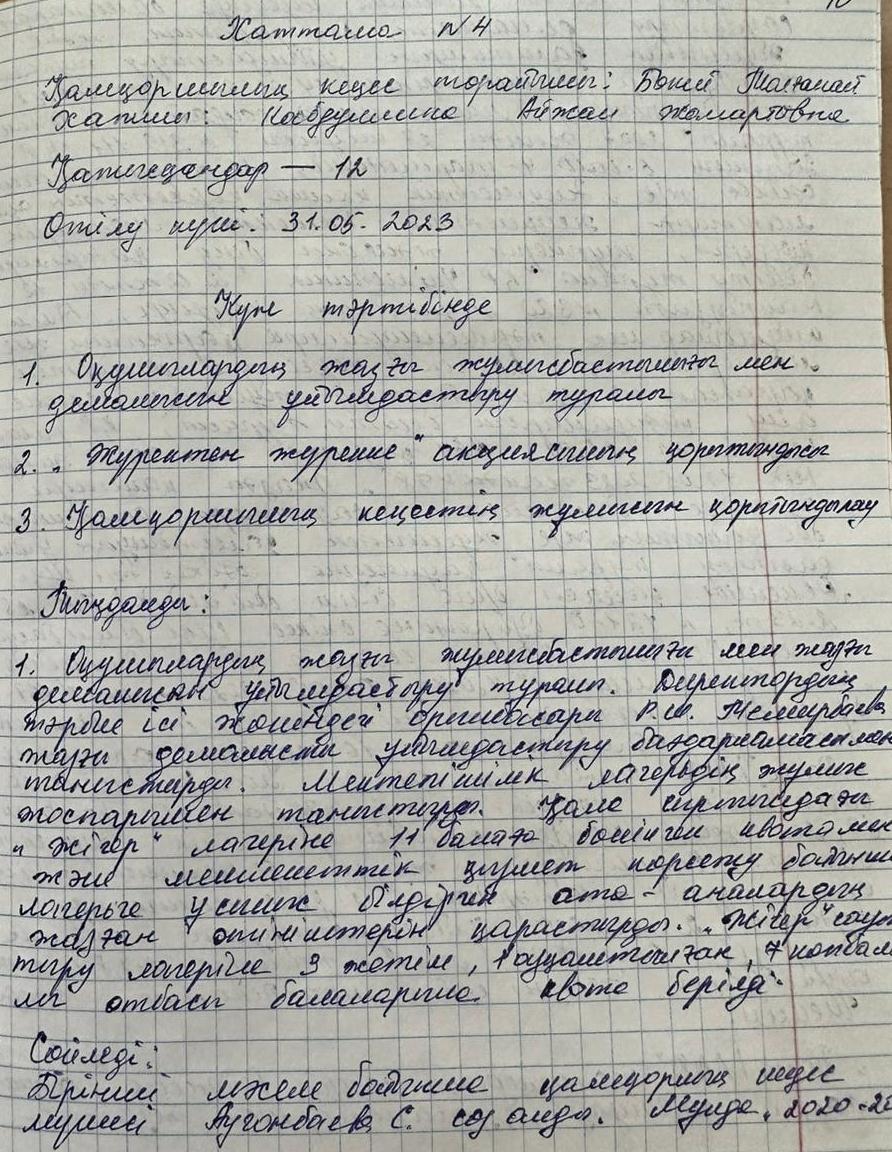 Хаттама №4
Қамқоршылық кеңес төрайымы: Бокей Толганай
Хатшы: Кабдуллина Айжан Жомартовна
Қатысқандар — 12
Өтілу күні: 31.05.2023
Күн тәртібінде
1. Оқушылардың жазғы жұмысбастылығы мен
демалысын ұйымдастыру туралы
2. „Жүректен жүрекке" акциясының қорытындысы
3 Қамқоршылық кеңестің жұмысын қорытындылау
Тыңдалды:
1. Оқушылардың жазғы жұмысбастылығы мен жазғы
демалысын ұйымдастыру туралы. Директордың
тәрбие ісі жөніндегі орынбасары Р.Ш. Темирбаева
жазғы демалысты ұйымдастыру бағдарламасымен
таныстырды. Мектепішілік лагерьдің жұмыс
жоспарымен таныстырды. Қала сыртындағы
„Жігер" лагеріне 11 балаға бөлінген квота мен
және мемлекеттік қызмет көрсету бойынша
лагерьге ұсыныс білдірген ата-аналардың
жазған өтініштерін қарастырды. „Жігер" сауық
тыру лагеріне 3 жетім, 1 қамқ, 7 көпбала
лы отбасы балаларына квота берілді.
Сөйледі:
Бірінші мәселе бойынша қамқорлық кеңес
мүшесі Аугонбаева С. сөз алды. Мұнда „2020-20